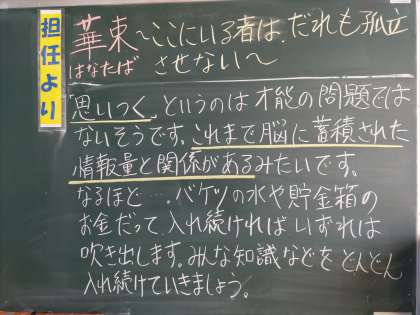 担任より
華束 ～ここにいる者は、だれも孤立
はなたば させない～
「思いつく」というのは才能の問題では
ないそうです。これまで脳に蓄積された
情報量と関係があるみたいです。
なるほど…。バケツの水や貯金箱の
お金だって、入れ続ければいずれは
吹き出します。みんな知識などをどんどん
入れ続けていきましょう。